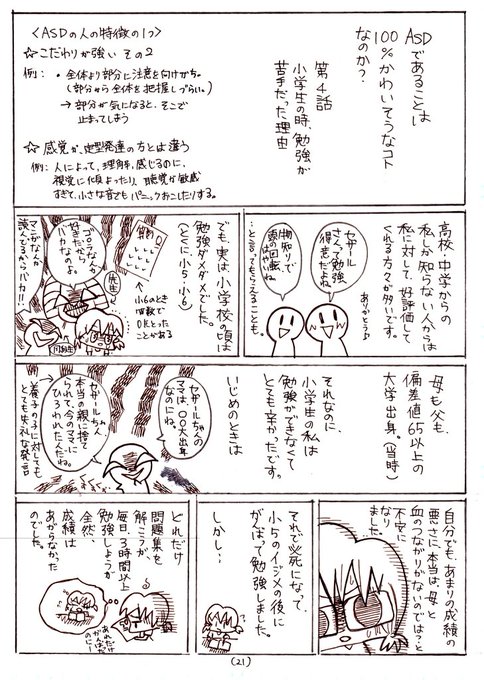 ASDであることは
100%かわいそうなコト
なのか?
第4話
小学生の時、勉強が
苦手だった理由
<ASDの人の特徴の1つ>
☆こだわりが強い その2
例: ・全体より部分に注意を向けがち。
(部分から全体を把握しづらい。)
→部分が気になると、そこで
止まってしまう
☆感覚が、定型発達の方とは違う
例:人によって、理解や、感じるのに、
視覚に偏よったり、聴覚が敏感
すぎて、小さな音でもパニックおこしたりする。
高校・中学からの
私しか知らない人からは
私に対して、好評価して
くれる方々が多いです。
ありがとう♪
セザール
さんって勉強
得意だよね
物知りで
頭の回転も
はやいね
…と言ってもらえることも。
でも、実は小学校の頃は
勉強ダメダメでした。
(とくに小5・小6)
小6のとき
回数で
0点とった
ことがある
算数
0
先生
ゴジラなんか
好きだから
バカなのよ。
同級生
マンガなんか
読んでるからバカ!!
母も父も、
偏差値65以上の
大学出身。(当時)
それなのに、
小学生の私は
勉強ができなくて
とても辛かったです。
いじめのときは
セザールちゃんの
ママは、〇〇大出身
なのにね。
セザールちゃん、
本当の親に捨て
られて、今のママに
ひろわれたんだね。
養子の子に対しても
とても失礼な発言
自分でも、あまりの成績の
悪さに、本当は、母と
血のつながりがないのでは?と
不安に
なり
ました。
それで必死になって、
小5のイジメの後に
がんばって勉強しました。
しかし…
どれだけ
問題集を
解こうが、
毎日、3時間以上
勉強しようが
全然、
成績は
あがらなかった
のでした。
あれだけ
がんばった
のに
(21)